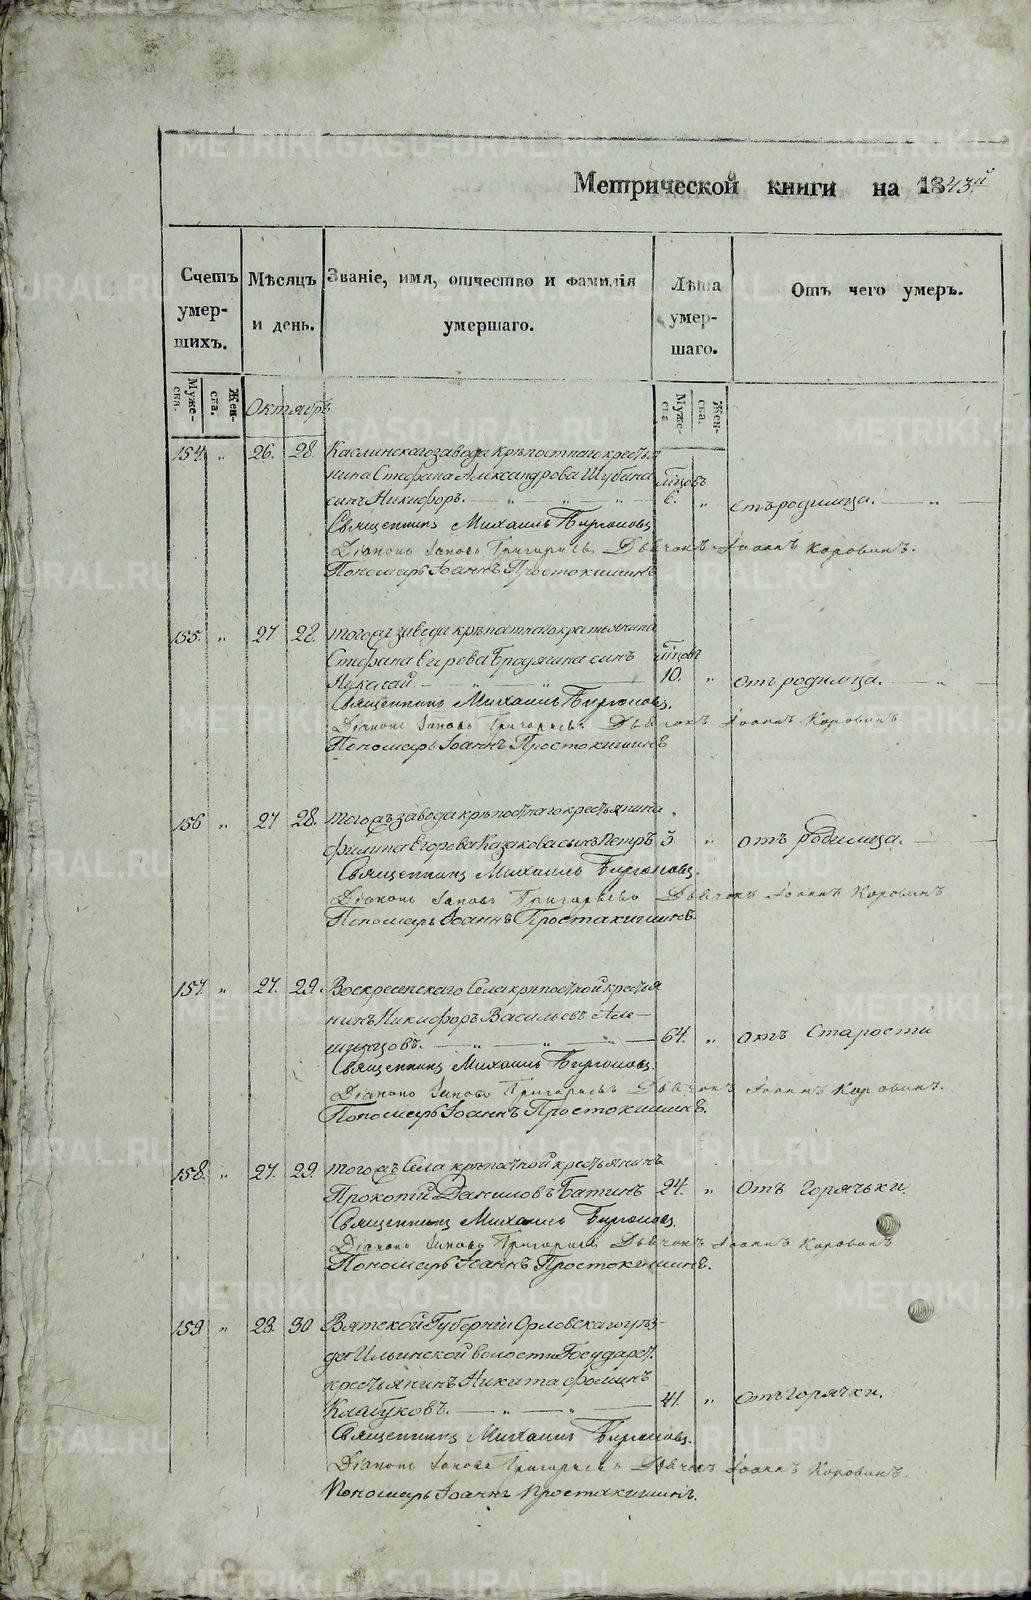 Метрической книги на 1843й
Счетъ умер-шихъ.
Мѣсяцъ и день.
Званіе, имя, отчество и фамилія умершаго.
Лѣта умер-шаго.
Отъ чего умеръ.
Муже-ска. Жен-ска.
Октябрь
Муже-ска. Жен-ска.
154. „ 26. 28. Каслинскаго завода крѣпостнаго крестья
нина Стефана Александрова Шубина
сынъ Никифоръ. — „ — „ — „ — мѣсцовъ 6. „ отъ родимца. — „ —
Священникъ Михаилъ
Діаконъ Іаковъ Григорьевъ Дьячокъ Іоаннъ Коровинъ.
Пономарь Іоаннъ Простокишинъ
155. „ 27 28. тогожъ завода крѣпостнаго крестьянина
Стефана Егорова Бродягина сынъ мѣсцовъ
Николай. — „ — „ — 10. „ отъ родимца. — „ —
Священникъ Михаилъ
Діаконъ Іаковъ Григорьевъ Дьячокъ Іоаннъ Коровинъ.
Пономарь Іоаннъ Простокишинъ
156 „ 27 28. тогожъ завода крѣпостнаго крестьянина
Филипа Егорова Казакова сынъ Петръ 3. „ отъ родимца. —
Священникъ Михаилъ
Діаконъ Іаковъ Григорьевъ Дьячокъ Іоаннъ Коровинъ
Пономарь Іоаннъ Простакишинъ.
157. „ 27. 29. Воскресенскаго Села крѣпостной крестья
нинъ Никифоръ Васильевъ
— „ — „ — „ — 64. „ отъ Старости
Священникъ Михаилъ
Діаконъ Іаковъ Григорьевъ Дьячокъ Іоаннъ Коровинъ.
Пономарь Іоаннъ Простокишинъ.
158. „ 27. 29. тогожъ Села крѣпостной крестьянинъ
Прокопій Даниловъ Батинъ 24. „ Отъ Горячьки.
Священникъ Михаилъ
Діаконъ Іаковъ Григорьевъ Дьячокъ Іоаннъ Коровинъ
Пономарь Іоаннъ Простокишинъ.
159 „ 28. 30 Вятской Губерніи Орловскаго уѣз-
да Ильинской волости Государст.
крестьянинъ Никита Фоминъ
Клабуковъ. — „ — „ — 41. „ Отъ горячки.
Священникъ Михаилъ
Діаконъ Іаковъ Григорьевъ Дьячокъ Іоаннъ Коровинъ.
Пономарь Іоаннъ Простакишинъ.
METRIKI.GASO-URAL.RU